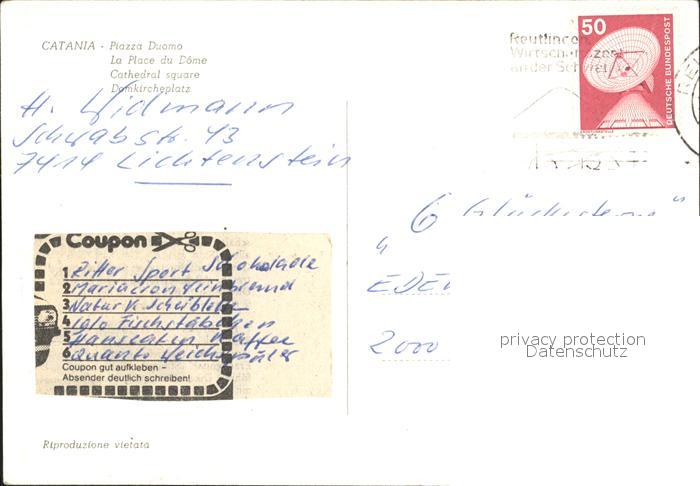 CATANIA - Piazza Duomo
La Place du Dôme
Cathedral square
Domkircheplatz
H. Widmann
Schwabstr. 43
7414 Lichtenstein
Coupon
1 Ritter Sport Schokolade
2 Mariacron Weinbrand
3 Natur K. Scheibletten
4 Iglo Fischstäbchen
5 Hanseatin Kaffee
6 Quanto Weichspüler
Coupon gut aufkleben –
Absender deutlich schreiben!
Riproduzione vietata
Reutlingen
Wirtschaftszent
an der Schwäb
50
DEUTSCHE BUNDESPOST
„ 6 "
"
EDE
2000
privacy protection
Datenschutz